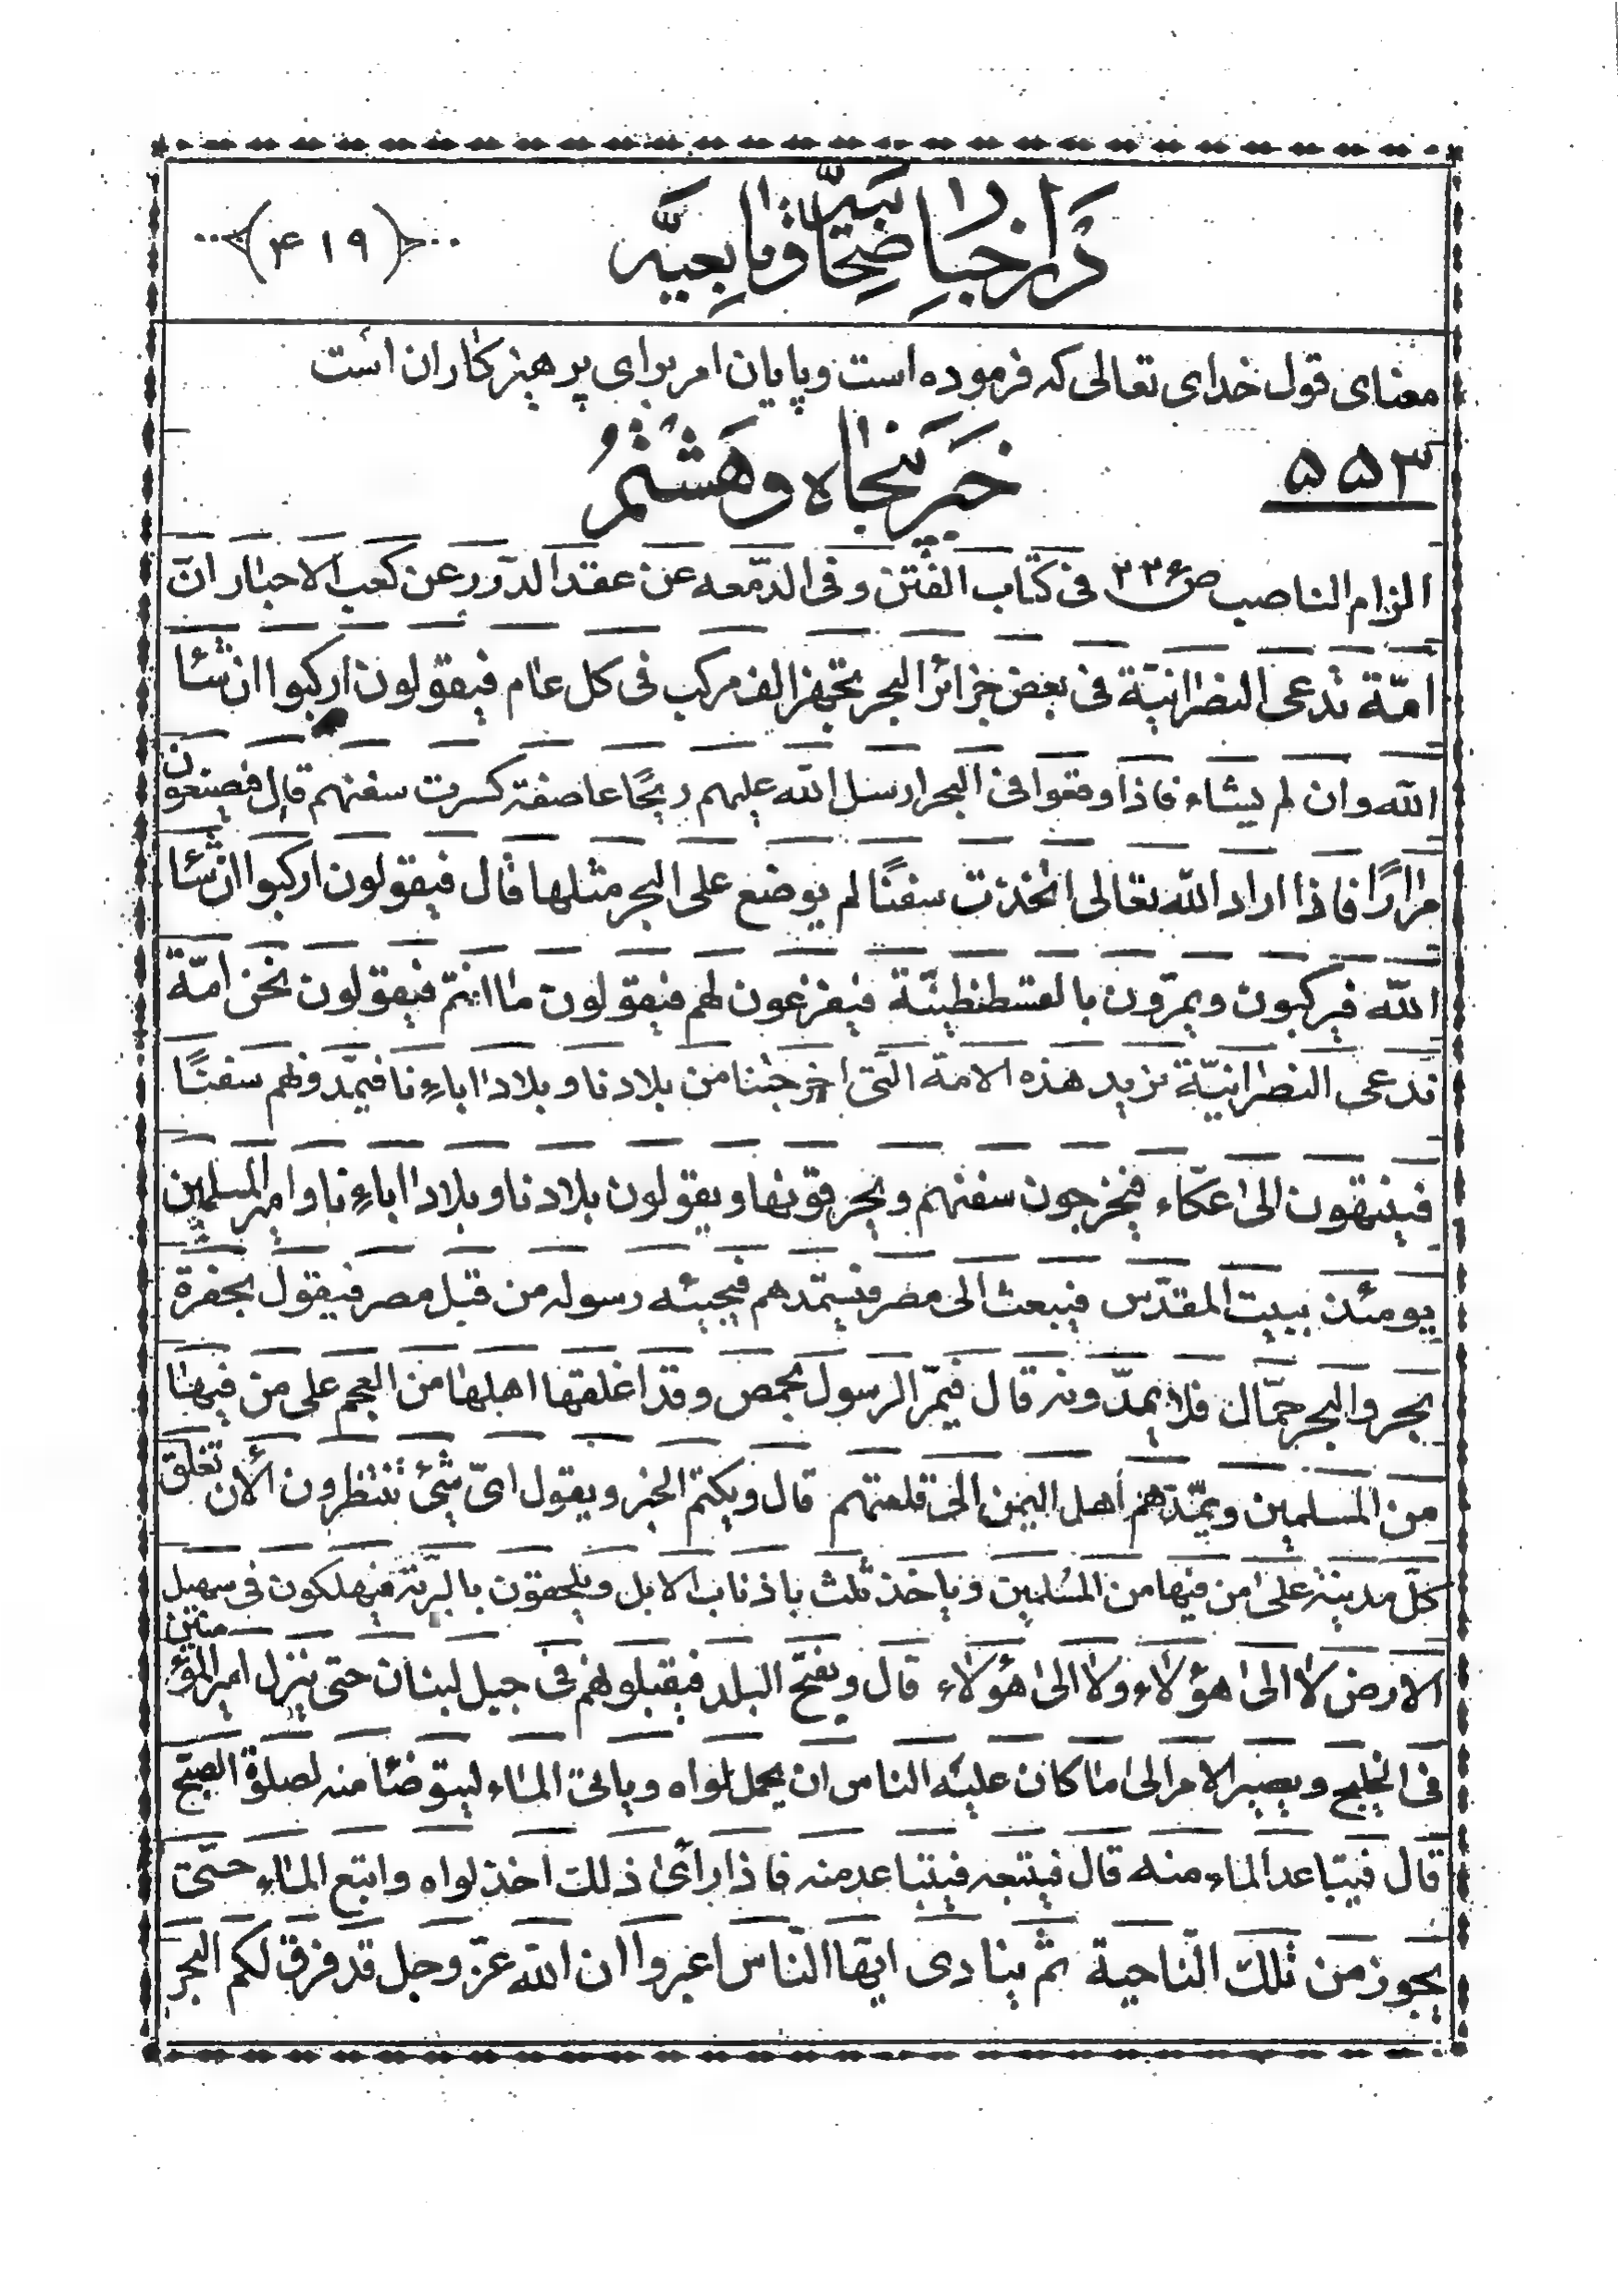 در اخبار صحابه و تابعیه
(۴۱۹)
معنای قول خدای تعالی که فرموده است و پایان امر برای پرهیزکاران است
۵۵۳
خبر پنجاه و هشتم
الزام الناصب ص ۲۳۶ فی کتاب الفتن و فی الدمعه عن عقد الدّرر عن کعب الاحبار انّ
امّة تدعی النصرانیّة فی بعض جزائر البحر تجهز الف مرکب فی کل عام فیقولون ارکبوا ان شاء
الله و ان لم یشاء فاذا وقعوا فی البحر ارسل الله علیهم ریحًا عاصفة کسرت سفنهم قال فیصنعون
مرارًا فاذا اراد الله تعالی اتخذت سفنًا لم یوضع علی البحر مثلها قال فیقولون ارکبوا ان شاء
الله فیرکبون و یمرّون بالقسطنطینیّة فیفزعون لهم فیقولون ما انتم فیقولون نحن امّة
تدعی النصرانیّة نرید هذه الامة الّتی اخرجتنا من بلادنا و بلاد اباءنا فیمدّونهم سفنًا
فینتهون الی عکّاء فیخرجون سفنهم و یحرقونها و یقولون بلادنا و بلاد اباءنا و امیر المسلمین
یومئذ ببیت المقدّس فیبعث الی مصر فیستمدهم فیجیئه رسوله من قبل مصر فیقول بحضرة
بحر و البحر حمّال فلا یمدّونه قال فیمرّ الرسول بحمص و قد اغلقها اهلها من العجم علی من فیها
من المسلمین و یمدّهم اهل الیمن الی قلعتهم قال و یکتم الخبر و یقول ایّ شیئ تنتظرون الأن تغلق
کلّ مدینة علی من فیها من المسلمین و یاخذ ثلث باذناب الابل و یلحقون بالبرّیّة فیهلکون فی سهیل
الارض لا الی هؤلاء ولا الی هؤلاء قال و یفتح البلد فیقبلونهم فی جبل لبنان حتی ینزل امیر المؤمنین
فی الخلیج و یصیر الامر الی ما کان علیه الناس ان یحمل لواه و یاتی الماء لیتوضّأ منه لصلوة الصبح
قال فیتباعد الماء منه قال فیتبعه فیتباعد منه فاذا رأی ذلک اخذ لواه و اتبع الماء حتّی
یجوز من تلک النّاحیة ثم ینادی ایها النّاس اعبروا ان الله عزّ و جل قد فرق لکم البحر